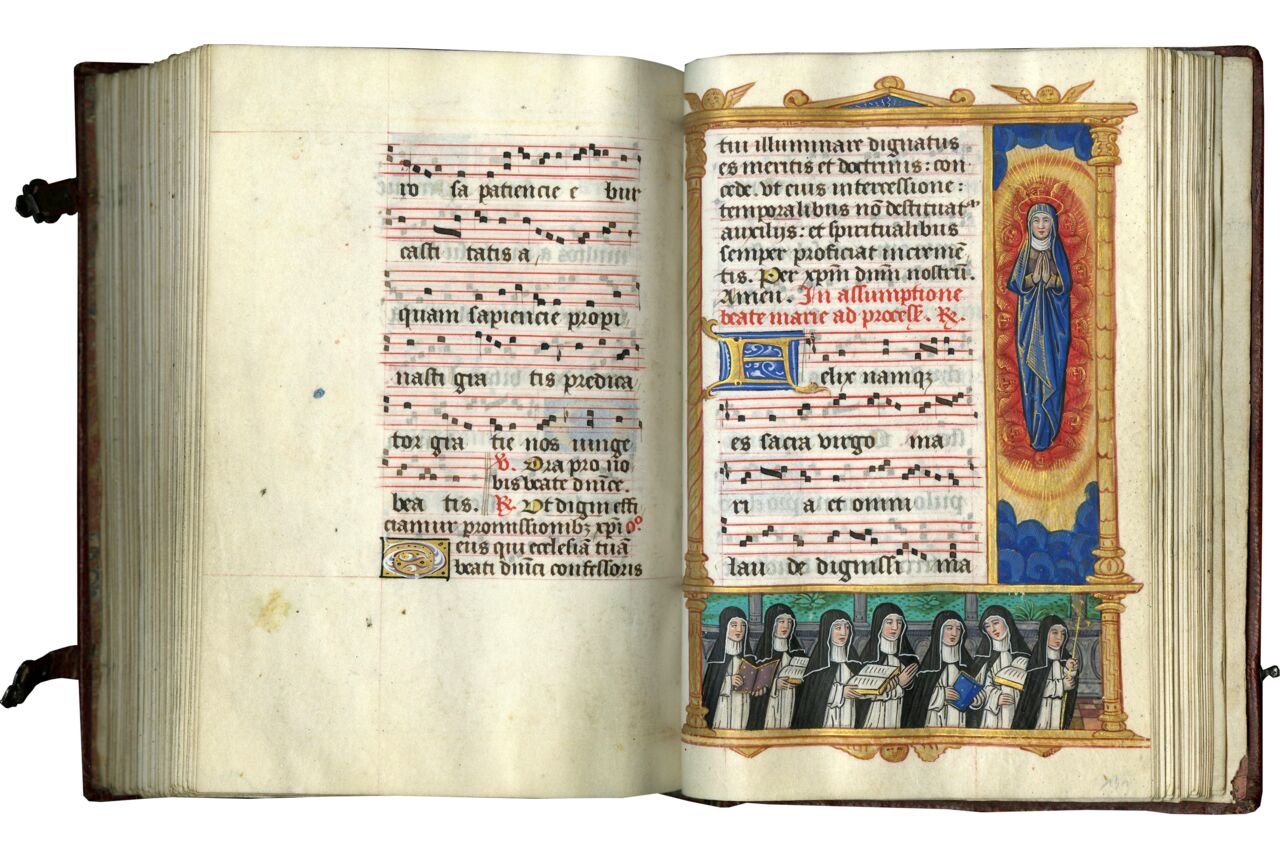 ro sa patiencie e bur
casti tatis a
quam sapiencie propi
nasti gra tis predica
tor gra tie nos iunge
V. Ora pro no
bis beate dnīce.
bea tis. R. Ut digni effi
ciamur promissionibȝ xpī Oº
Deus qui ecclesiā tuā
beati dnīci confessoris
tui illuminare dignatus
es meritis et doctrinis: con
cede. vt eius intercessione:
temporalibus nō destituat
auxilijs: et spiritualibus
semper proficiat incremē
tis. Per xpm̄ dnm̄ nostrū.
Amen. In assumptione
beate marie ad process. R.
Felix namqȝ
es sacra virgo ma
ri a et omni
lau de dignissi ma